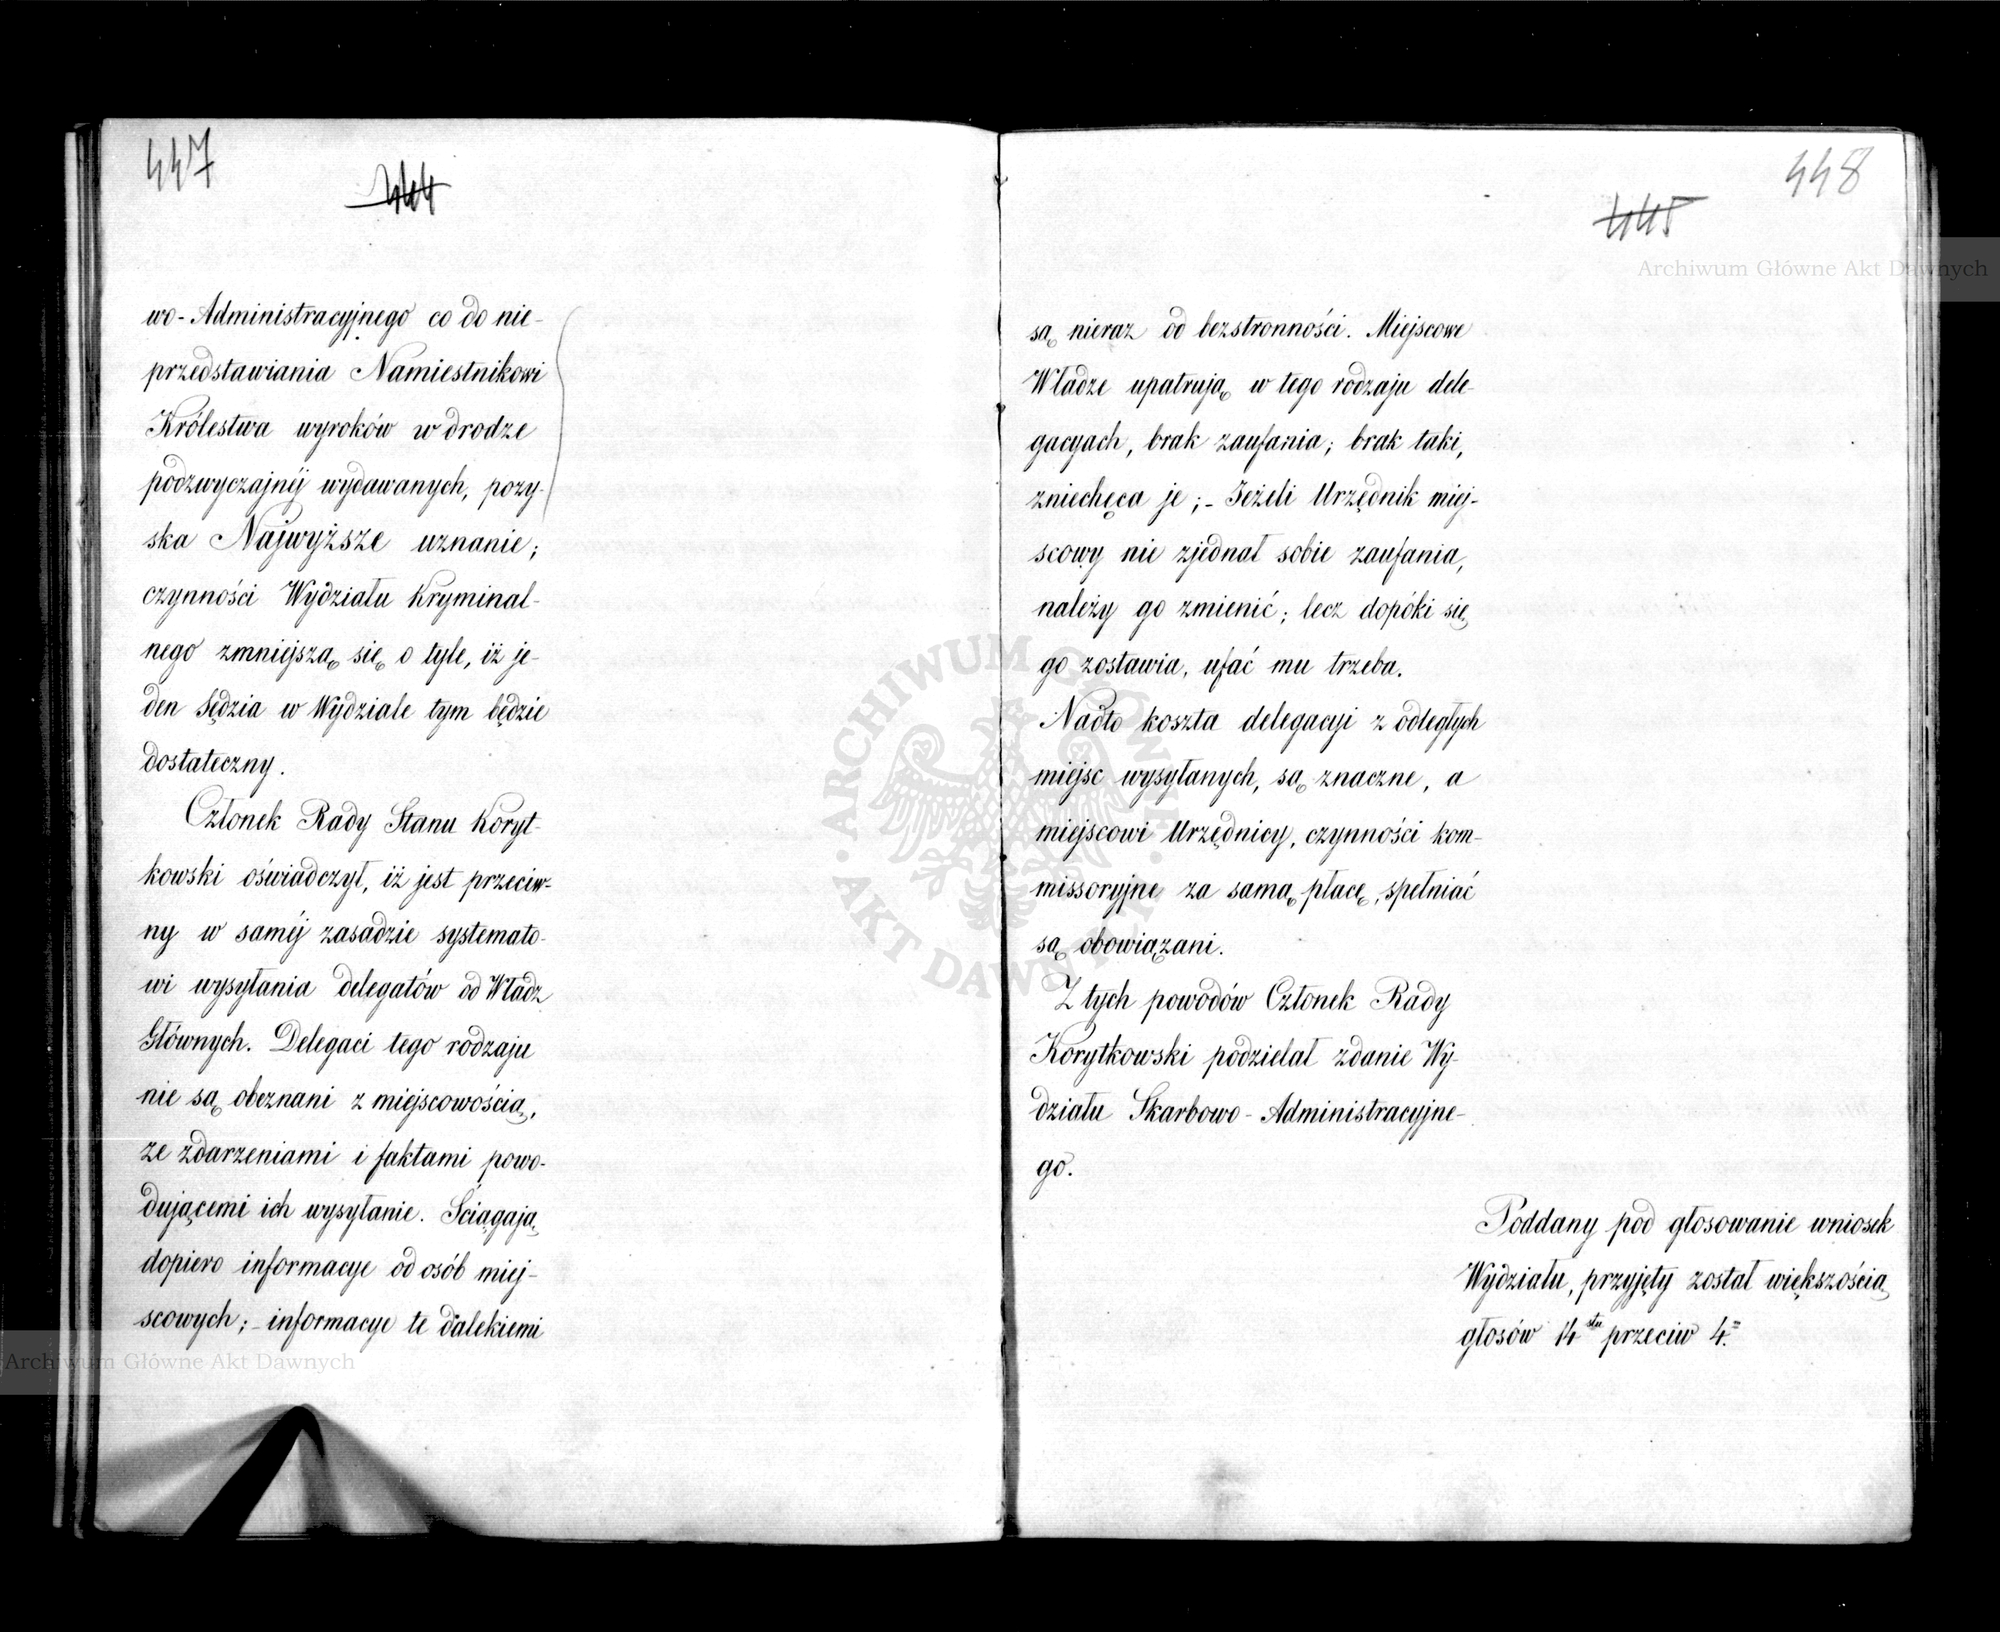 447
444
wo-Administracyjnego co do nie-
przedstawiania Namiestnikowi
Królestwa wyroków w drodze
podzwyczajnéj wydawanych, pozy-
ska Najwyższe uznanie;
czynności Wydziału Kryminal-
nego zmniejszą się o tyle, iż je-
den Sędzia w Wydziale tym będzie
dostateczny.
Członek Rady Stanu Koryt-
kowski oświadczył, iż jest przeciw-
ny w saméj zasadzie systemato-
wi wysyłania delegatów od Władz
Głównych. Delegaci tego rodzaju
nie są obeznani z miejscowością,
ze zdarzeniami i faktami powo-
dującemi ich wysyłanie. Ściągają
dopiero informacye od osób miej-
scowych;- informacye te dalekiemi
448
445
są nieraz od bezstronności. Miejscowe
Władze upatrują w tego rodzaju dele-
gacyach, brak zaufania; brak taki,
zniechęca je;- Jeżeli Urzędnik miej-
scowy nie zjednał sobie zaufania,
należy go zmienić; lecz dopóki się
go zostawia, ufać mu trzeba.
Nadto koszta delegacyi z odległych
miejsc wysyłanych, są znaczne, a
miejscowi Urzędnicy, czynności kom-
missoryjne za samą płacę, spełniać
są obowiązani.
Z tych powodów Członek Rady
Korytkowski podzielał zdanie Wy-
działu Skarbowo-Administracyjne-
go.
Poddany pod głosowanie wniosek
Wydziału, przyjęty został większością
głosów 14stu przeciw 4.
Archiwum Główne Akt Dawnych
Archiwum Główne Akt Dawnych
ARCHIWUM GŁÓWNE
AKT DAWNYCH